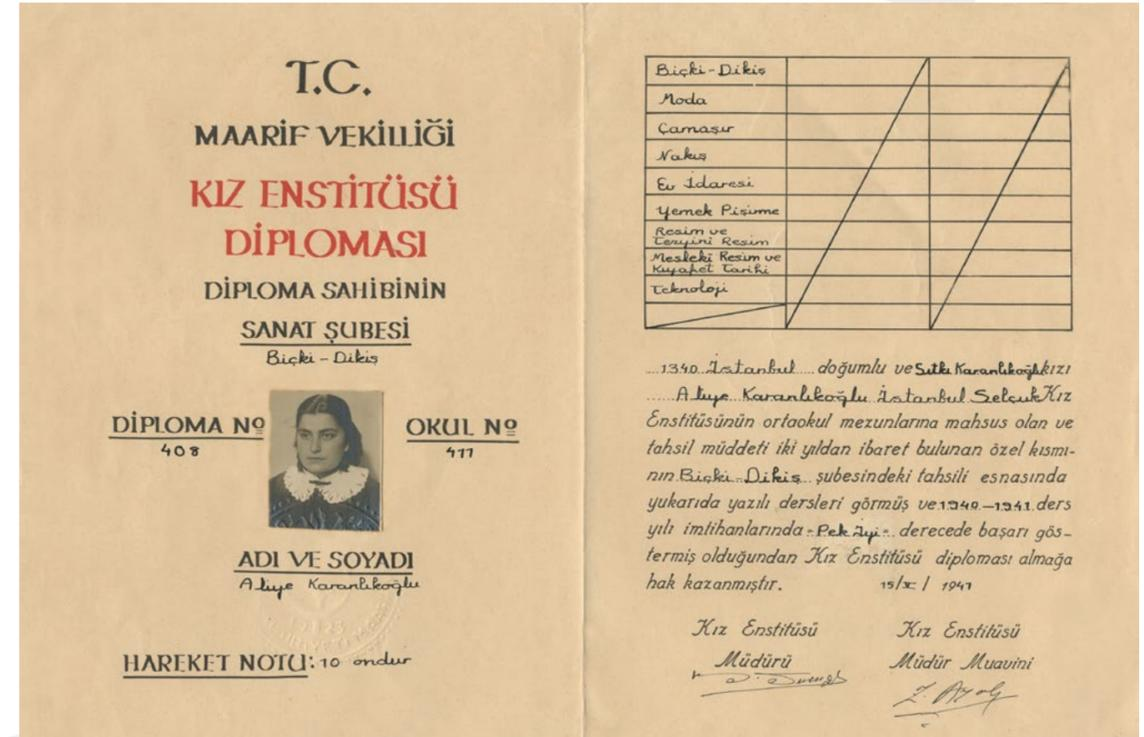 T.C.
MAARİF VEKİLLİĞİ
KIZ ENSTİTÜSÜ
DİPLOMASI
DİPLOMA SAHİBİNİN
SANAT ŞUBESİ
Biçki - Dikiş
DİPLOMA Nº
408
OKUL Nº
477
ADI VE SOYADI
Aliye Karanlıkoğlu
HAREKET NOTU: 10 ondur
Biçki - Dikiş
Moda
Çamaşır
Nakış
Ev İdaresi
Yemek Pişirme
Resim ve
Tezyini Resim
Mesleki Resim ve
Kıyafet Tarihi
Teknoloji
1340 İstanbul doğumlu ve Sıtkı Karanlıkoğlu kızı
Aliye Karanlıkoğlu İstanbul Selçuk Kız
Enstitüsünün ortaokul mezunlarına mahsus olan ve
tahsil müddeti iki yıldan ibaret bulunan özel kısmı-
nın Biçki-Dikiş şubesindeki tahsili esnasında
yukarıda yazılı dersleri görmüş ve 1940-1941 ders
yılı imtihanlarında -Pek İyi- derecede başarı gös-
termiş olduğundan Kız Enstitüsü diploması almağa
hak kazanmıştır. 15/X/1941
Kız Enstitüsü
Müdürü
Kız Enstitüsü
Müdür Muavini